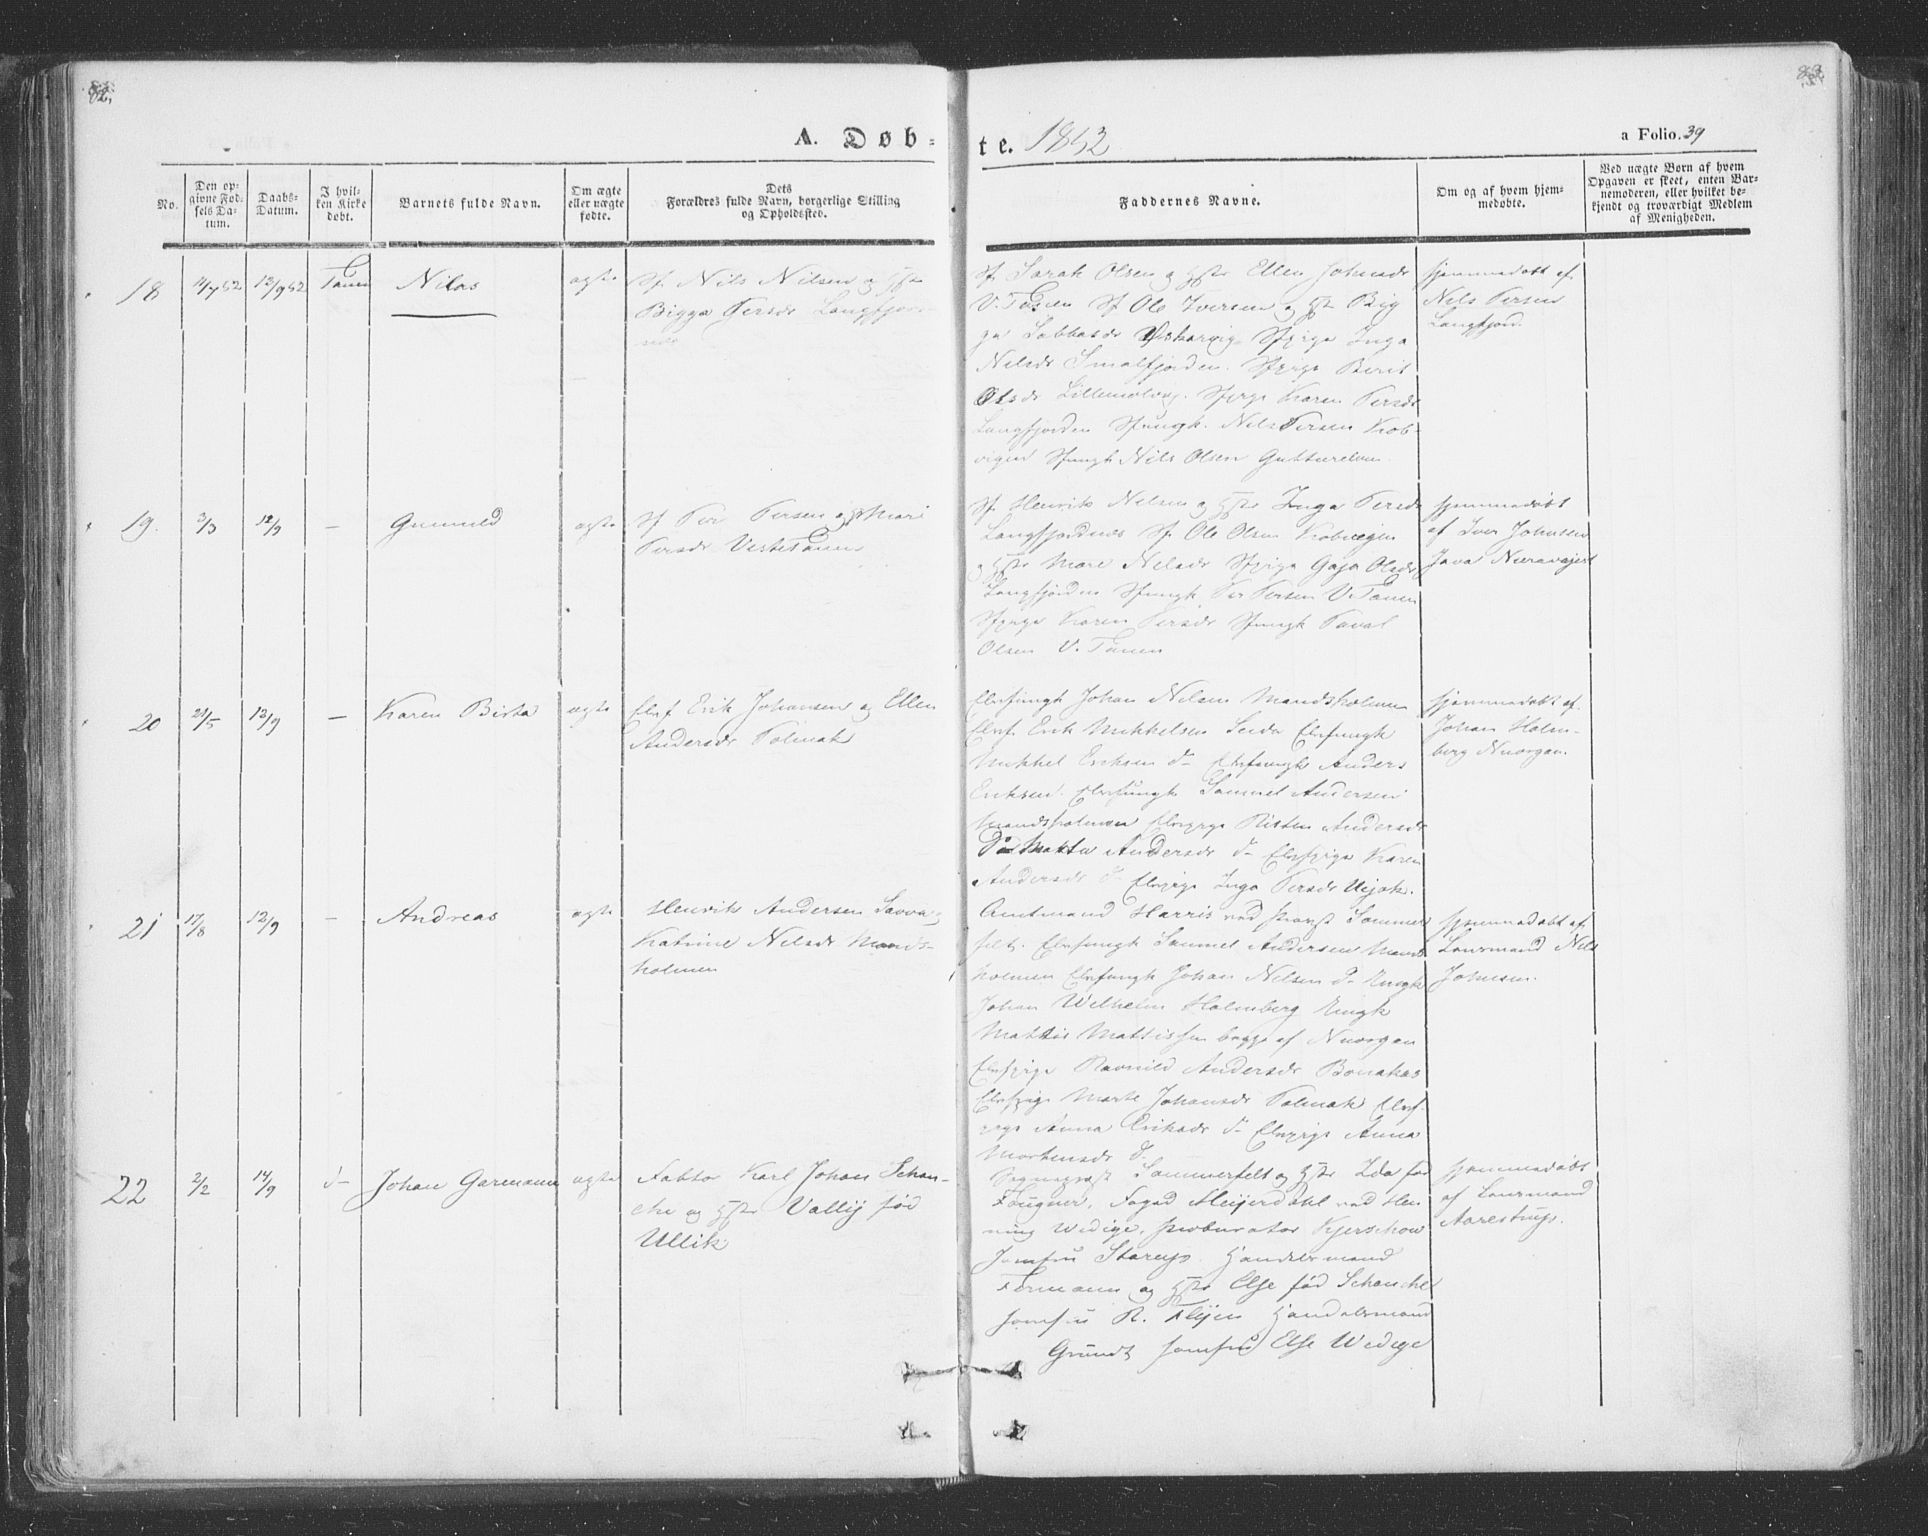 A. Døb-
te. 1852
a Folio. 39
No.
Den op-
givne Fød-
sels Da-
tum.
Daabs-
Datum.
I hvil-
ken Kirke
døbt.
Barnets fulde Navn.
Om ægte
eller uægte
fødte.
Dets
Forældres fulde Navn, borgerlige Stilling
og Opholdssted.
Faddernes Navne.
Om og af hvem hjem-
medøbte.
Ved uægte Børn af hvem
Opgaven er skeet, enten Bar-
nemoderen, eller hvilket be-
kjendt og troværdigt Medlem
af Menigheden.
18
12/9 52
Tanen
Nilas
ægte
Sf. Nils Nilsen og Hstr
Bigga Persdr Langfjor-
Sf. Sarak Olsen og Hstr Ellen Johnsdr
V. Tanen Sf Ole Iversen og Hstr Big
ga Sabbasdr Vishavig Sfpige Inga
Nilsdr Smalfjorden. Sfpige Berit
Olsdr Lillemolvig. Sfpige Karen Persdr
Langfjorden Sfungk. Nils Persen Kob-
vigen Sfungk Nils Olsen Gulturelven
Hjemmedøbt af
Nils Persen
Langfjord.
19.
3/3
12/9
-
Gunnild
ægte
Sf Per Persen og Mari
Persdr Vestertanen
Sf. Henrik Nilsen og Hstr Inga Persdr
Langfjordnes Sf. Ole Olsen Kobvigen
og Hstr Mare Nilsdr Sfpige Gaja Olsdr
Langfjorden Sfungk Per Persen V. Tanen
Sfpige Karen Persdr Sfungk Paval
Olsen V. Tanen
Hjemmedøbt
af Iver Johnsen
20
21/5
12/9
-
Karen Birta
ægte
Elvf Erik Johansen og Ellen
Andersdr Polmak
Elvfungk Johan Nilsen Mandsholmen
Elvf. Erik Mikkelsen Seida Elvfungk
Mikkel Eriksen d- Elvfungk Anders
Eriksen. Elvfungk Sammel Andersen
Mandsholmen Elvpige Risten Andersdr
Marta Andersdr d- Elvfpige Karen
Andersdr d- Elvpige Inga Persdr
Hjemmedøbt af
Johan Holm-
berg Nuorgan.
21
17/8
12/9
-
Andreas
ægte
Henrik Andersen Savva og
Katrine Nilsdr Mands-
holmen
Amtmand Harris ved Provst Sommer
felt. Elvfungk Sammel Andersen Mands
holmen Elvfungk Johan Nilsen d- Ungk
Johan Wilhelm Holmberg Ungk
Mattis Mattissen begge af Nuorgan
Elvfpige Ravnild Andersdr Bonakas
Elvfpige Marte Johansdr Polmak Elvf-
pige Anna Eriksdr d- Elvpige Anna
Mortensdr d-
Hjemmedøbt af
Lensmand Nils
Johnsen.
22
2/2
14/9
d-
Johan Garmann
ægte
Faktor Karl Johan Schan-
che og Hstr Vallij fød
Ullik
Sognepræst Sommerfelt og Hstr Ida fød
Fougner. Foged Meijerdahl ved Hen
ning Wedige, Prokurator Kjerschow
Jomfru Starup. Handelsmand
Formann og Hstr Else fød Schanche
Jomfru R. Handelsmand
Grundt Jomfru Else Wedege
Hjemmedøbt
af Lensmand
Aarestrup.